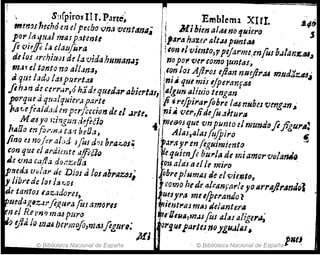 Suspiros III. Parte,
menos hechó en el pecho vna ventana;
por la qual mas patente
se viesse la clausura
de los archivos de la vida humana;
mas el tanto no allana,
à que lado las puertas
se han de cerrar, ó hâ de quedar abiertas,
porque à qualquiera parte
haze fealdad en perfeccion de el arte.
Mas yo ningun defecto
hallo en forma tan bella,
sino es no ser alado sus dos brazos;
con que el ardiente affecto
de vna casta donzella
pueda volar de Dios à los abrazos;
y libre de los lazos
de tantos cazadores,
pueda gozar segura sus amores
en el Reyno mas puro
ò està lo mas hermoso, mas seguro:
Mi
Emblema XIII.
Mi bien alas no quiero
para hazer altas puntas
con el viento, y pesarme en sus balanzas,
no por ver como juntas,
con los Astros estan nuestras mudãzas;
ni à que mis esperanças
algun alivio tengan
si à respirar sobre las nubes vengan;
ni à ver, si de su altura
veo que vn punto el mundo se figura;
Alas, alas suspiro
para yr en seguimiento
de quien se burla de mi amor volando
con alas a el le miro
sobre plumas de el viento,
como he de alcançarle yo arrastrando?
pues yra me esperando?
mientras mas delantera
me lleua, mas sus alas aligera,
porque partes no ygualas,
pues
© Biblioteca Nacional de España
© Biblioteca Nacional de España